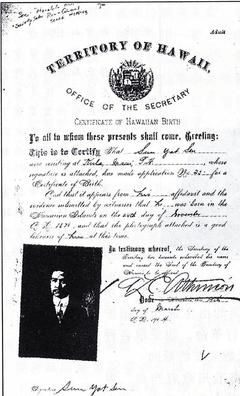 Admit
TERRITORY OF HAWAII,
OFFICE OF THE SECRETARY
CERTIFICATE OF HAWAIIAN BIRTH
To all to whom these presents shall come, Greeting:
This is to Certify That Sun Yat Sen
now residing at Kula, Maui, T.H., whose
signature is attached, has made application No. for a
Certificate of Birth.
And that it appears from his affidavit and the
evidence submitted by witnesses that he was born in the
Hawaiian Islands on the 24th day of November
A.D. 1870, and that the photograph attached is a good
likeness of him at this time.
In testimony whereof, the Secretary of the
Territory has hereunto subscribed his name
and caused the Seal of the Territory of
Hawaii to be affixed.
A. L. C. Atkinson
day of March
A.D. 1904
Sun Yat Sen